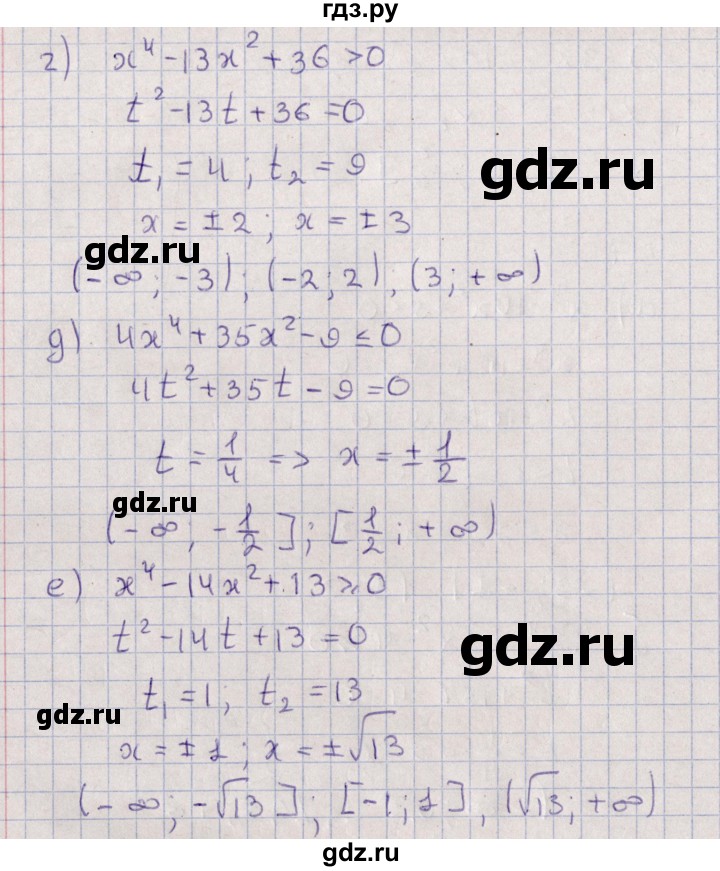 гдз.ру
г) x⁴ - 13x² + 36 > 0
t² - 13t + 36 = 0
t₁ = 4; t₂ = 9
gdz.ru
x = ± 2; x = ± 3
gdz.ru
(-∞; -3); (-2; 2), (3; +∞)
д) 4x⁴ + 35x² - 9 ≤ 0
4t² + 35t - 9 = 0
t = 1/4 => x = ± 1/2
gdz.ru
(-∞; -1/2]; [1/2; +∞)
е) x⁴ - 14x² + 13 ≥ 0
t² - 14t + 13 = 0
gdz.ru
t₁ = 1; t₂ = 13
gdz.ru
x = ± 1; x = ±√13
(-∞; -√13]; [-1; 1], (√13; +∞)
gdz.ru